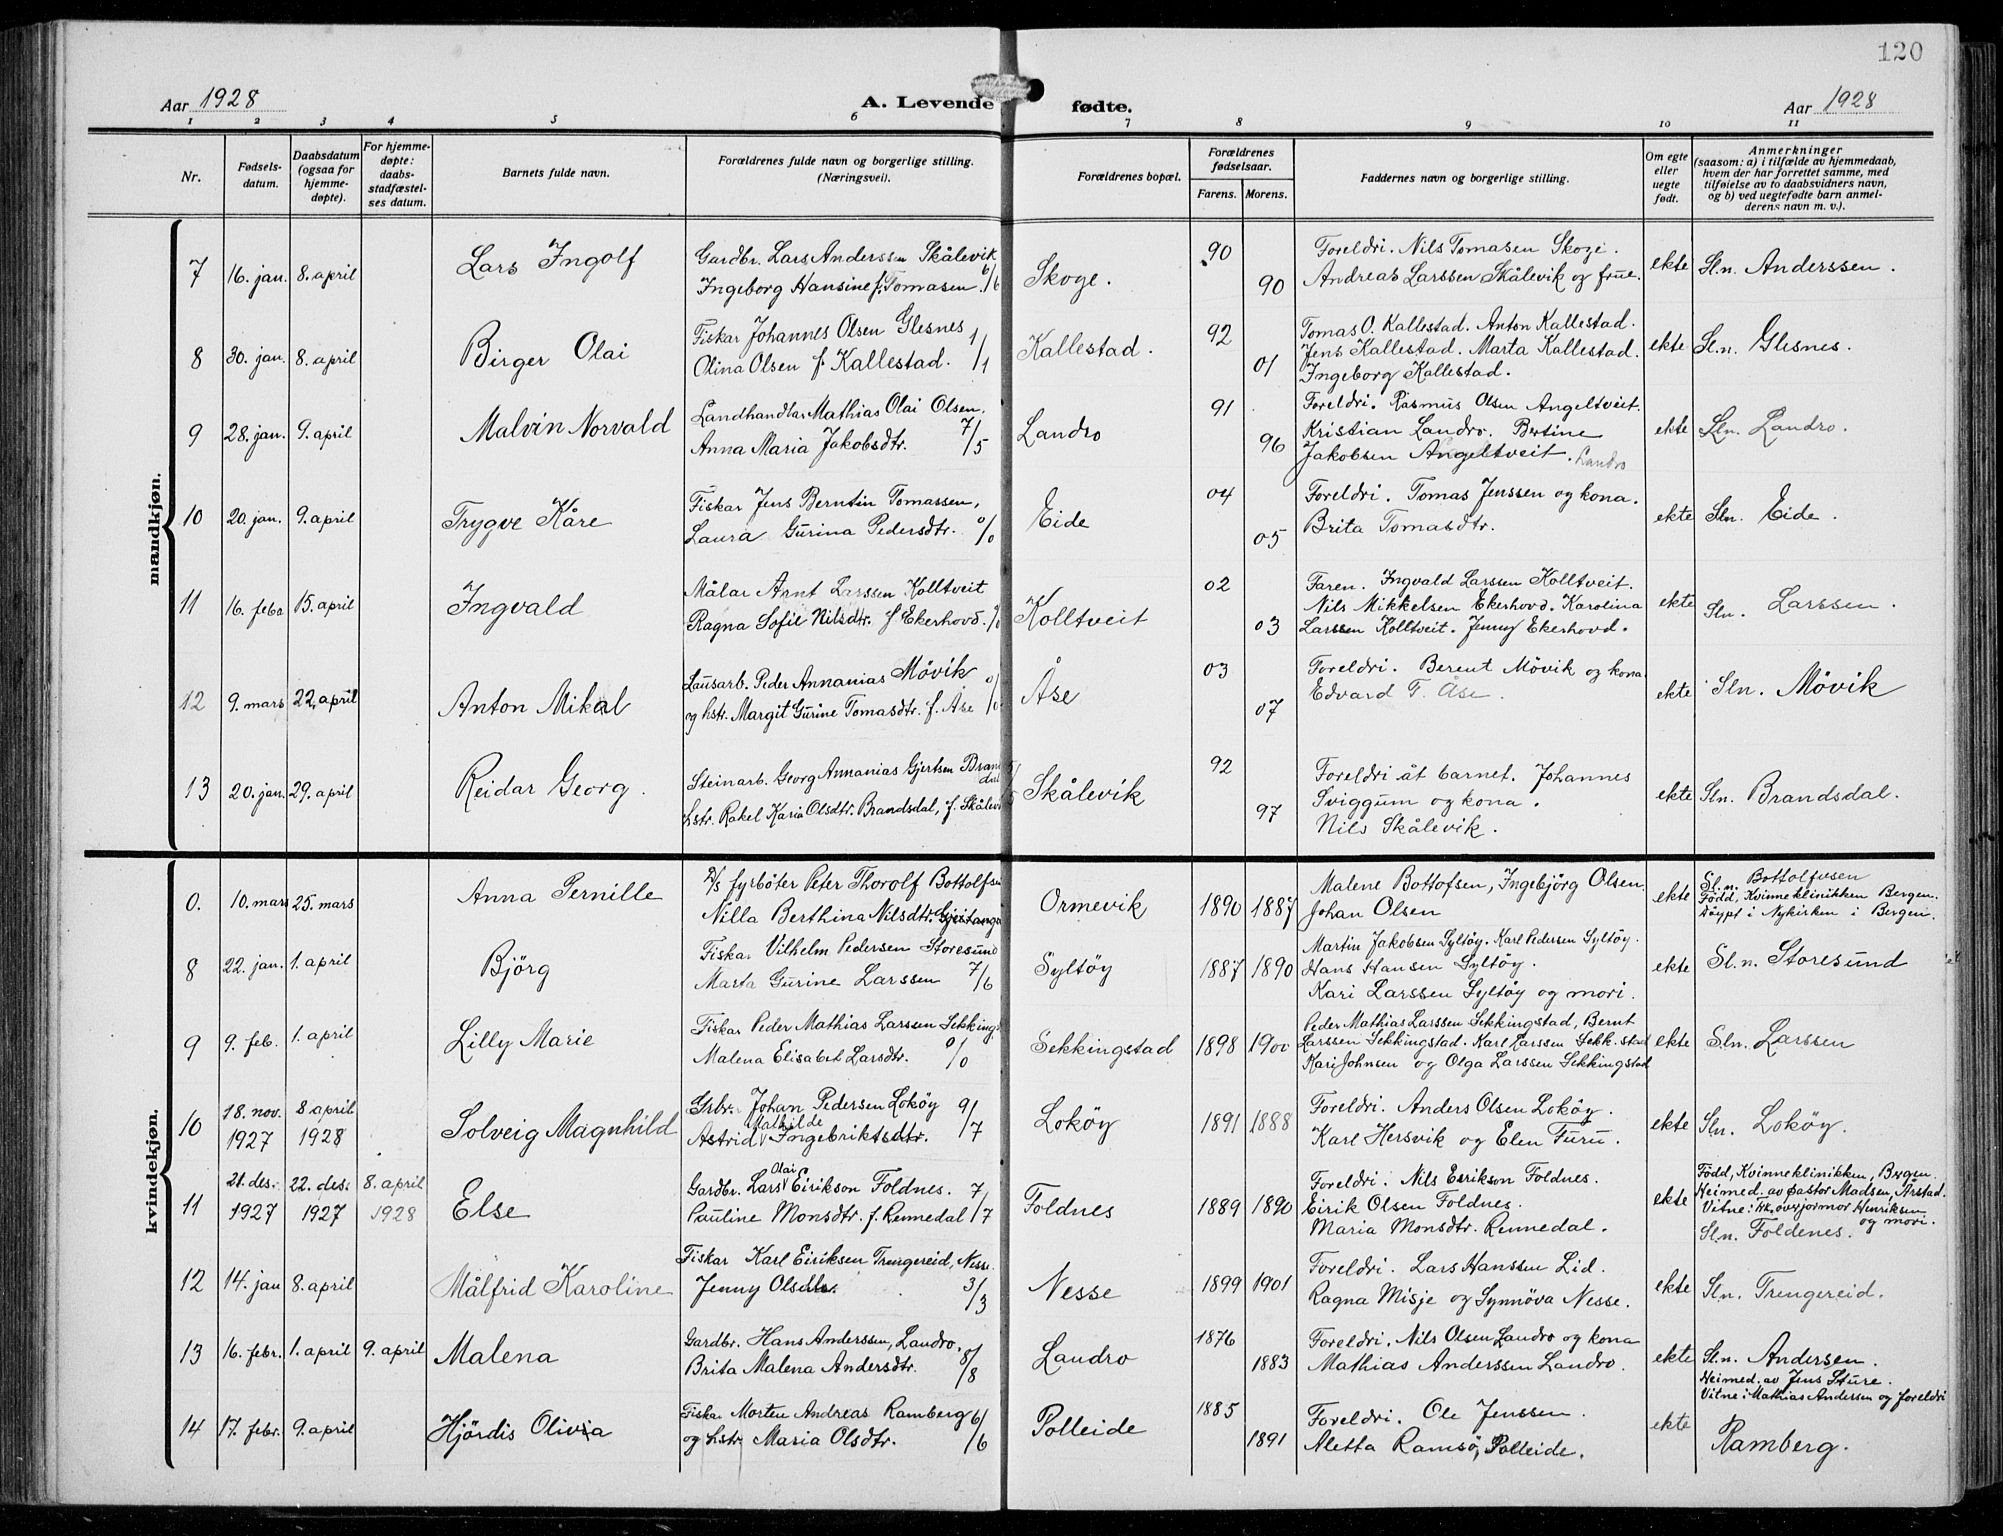 120
Aar 1928
A. Levende fødte.
Aar 1928
1 2 3 4 5 6 7 8 9 10 11
Nr.
Fødsels-
datum.
Daabsdatum
(ogsaa for
hjemme-
døpte).
For hjemme-
døpte:
daabs-
stadfæstel-
ses datum.
Barnets fulde navn.
Forældrenes fulde navn og borgerlige stilling.
(Næringsvei).
Forældrenes bopæl.
Forældrenes
fødselsaar.
Farens. Morens.
Faddernes navn og borgerlige stilling.
Om egte
eller
uegte
født.
Anmerkninger
(saasom: a) i tilfælde av hjemmedaab,
hvem der har forrettet samme, med
tilføielse av to daabsvidners navn,
og b) ved uegtefødte barn anmel-
derens navn m. v.).
mandkjøn.
7 16. jan. 8. april Lars Ingolf
Gardbr. Lars Anderssen Skålevik
Ingeborg Hansine f. Tomasen. 6/6
Skoge.
90
90
Foreldri. Nils Tomasen Skoge.
Andreas Larssen Skålevik og frue.
ekte Sl.n. Anderssen.
8 30. jan. 8. april Birger Olai
Fiskar Johannes Olsen Glesnes
Olina Olsen f. Kallestad. 1/1
Kallestad.
92
01
Tomas O. Kallestad. Anton Kallestad.
Jens Kallestad. Marta Kallestad.
Ingeborg Kallestad.
ekte Sl.n. Glesnes.
9 28. jan. 9. april Malvin Norvald
Landhandlar Mathias Olai Olsen.
Anna Maria Jakobsdtr. 7/5
Landro
91
96
Foreldri. Rasmus Olsen Angeltveit.
Kristian Landro. Bertine
Jakobsen Angeltveit. Landro
ekte Sln. Landro.
10 20. jan. 9. april Trygve Kåre
Fiskar Jens Berntin Tomassen,
Laura Gurina Pedersdtr. 0/0
Eide
04
05
Foreldri. Tomas Jenssen og kona.
Brita Tomasdtr.
ekte Sln. Eide.
11 16. febr. 15. april Ingvald
Målar Arnt Larssen Kolltveit
Ragna Sofie Nilsdtr. f Ekerhovd. 0/0
Kolltveit
02
03
Faren. Ingvald Larssen Kolltveit.
Nils Mikkelsen Ekerhovd. Karolina
Larssen Kolltveit. Jenny Ekerhovd.
ekte Sln. Larssen.
12 9. mars 22. april Anton Mikal
Lausarb. Peder Annanias Mövik
og hstr. Margit Gurine Tomasdtr. f. Åse 0/0
Åse
03
07
Foreldri. Berent Mövik og kona
Edvard T. Åse.
ekte Sln. Mövik
13 20. jan. 29. april Reidar Georg.
Steinarb. Georg Annanias Gjertsen Brans
dal
hstr. Rakel Karia Olsdtr. Brandsdal, f. Skålev
Skålevik
92
97
Foreldri åt barnet. Johannes
Sviggum og kona.
Nils Skålevik.
ekte Sln. Brandsdal.
kvindekjøn.
0. 10. mars 25. mars Anna Pernille
D/S fyrböter Peter Thorolf Bottolfsen
Nilla Berthina Nilsdtr. Gjeitanger
Ormevik 1890 1887
Malene Bottofsen, Ingebjörg Olsen.
Johan Olsen
ekte Sl.n. Bottolfsen
Född, Kvinneklinikken Bergen.
döypt i Nykirken i Bergen.
8 22. jan. 1. april Björg
Fiskar Vilhelm Pedersen Storesund
Marta Gurine Larssen 7/6
Syltöy 1887 1890
Martin Jakobsen Syltöy. Karl Pedersen Syltöy.
Hans Hansen Syltöy.
Kari Larssen Syltöy og mori.
ekte Sl.n. Storesund
9 9. feb. 1. april Lilly Marie
Fiskar Peder Mathias Larssen Sekkings
Malena Elisabet Larsdtr. 0/0
Sekkingstad 1898 1900
Peder Mathias Larssen Sekkingstad, Bernt
Larssen Sekkingstad. Karl Larssen Sekk. stad
Kari Johnsen og Olga Larssen Sekkingstad
ekte Sln. Larssen
10 18. nov. 1927 8 april 1928 Solveig Magnhild
Grbr. Johan Pedersen Loköy 9/7
Mathilde
Astrid Ingebriktsdtr.
Loköy 1891 1888
Foreldri. Anders Olsen Loköy.
Karl Hersvik og Elen Furu.
ekte Sln. Loköy.
11 21. des. 1927 22. des. 1927 8. april 1928 Else
Olai
Gardbr. Lars Eirikson Foldnes. 7/7
Pauline Monsdtr. f. Rennedal
Foldnes 1889 1890
Foreldri. Nils Eerikson Foldnes.
Eirik Olsen Foldnes.
Maria Monsdtr. Rennedal.
ekte Född, Kvinneklinikken, Bergen.
Heimed. av Pastor Madsen, Årstad.
Vitne: Frk. overjormor Henriksen
og mori.
Sl.n. Foldenes.
12 14. jan 8. april Målfrid Karoline
Fiskar Karl Eiriksen Trengereid, Nesse
Jenny Olsdtr. 3/3
Nesse 1899 1901
Foreldri. Lars Hanssen Lid.
Ragna Misje og Synnöva Nesse.
ekte Sln. Trengereid.
13 16. febr. 1. april 9. april Malena
Gardbr. Hans Anderssen, Landro.
Brita Malena Andersdtr. 8/8
Landro 1876
1883
Foreldri. Nils Olsen Landro og kona
Mathias Anderssen Landro.
ekte Sl.n. Andersen.
Heimed. av Jens Sture.
Vitne: Mathias Andersen og foreldri
14 17. febr. 9. april Hjördis Olivia
Fiskar Morten Andreas Ramberg 6/6
og hstr. Maria Olsdtr.
Polleide 1885
1891
Foreldri. Ole Jenssen.
Aletta Ramsö, Polleide.
ekte Ramberg.